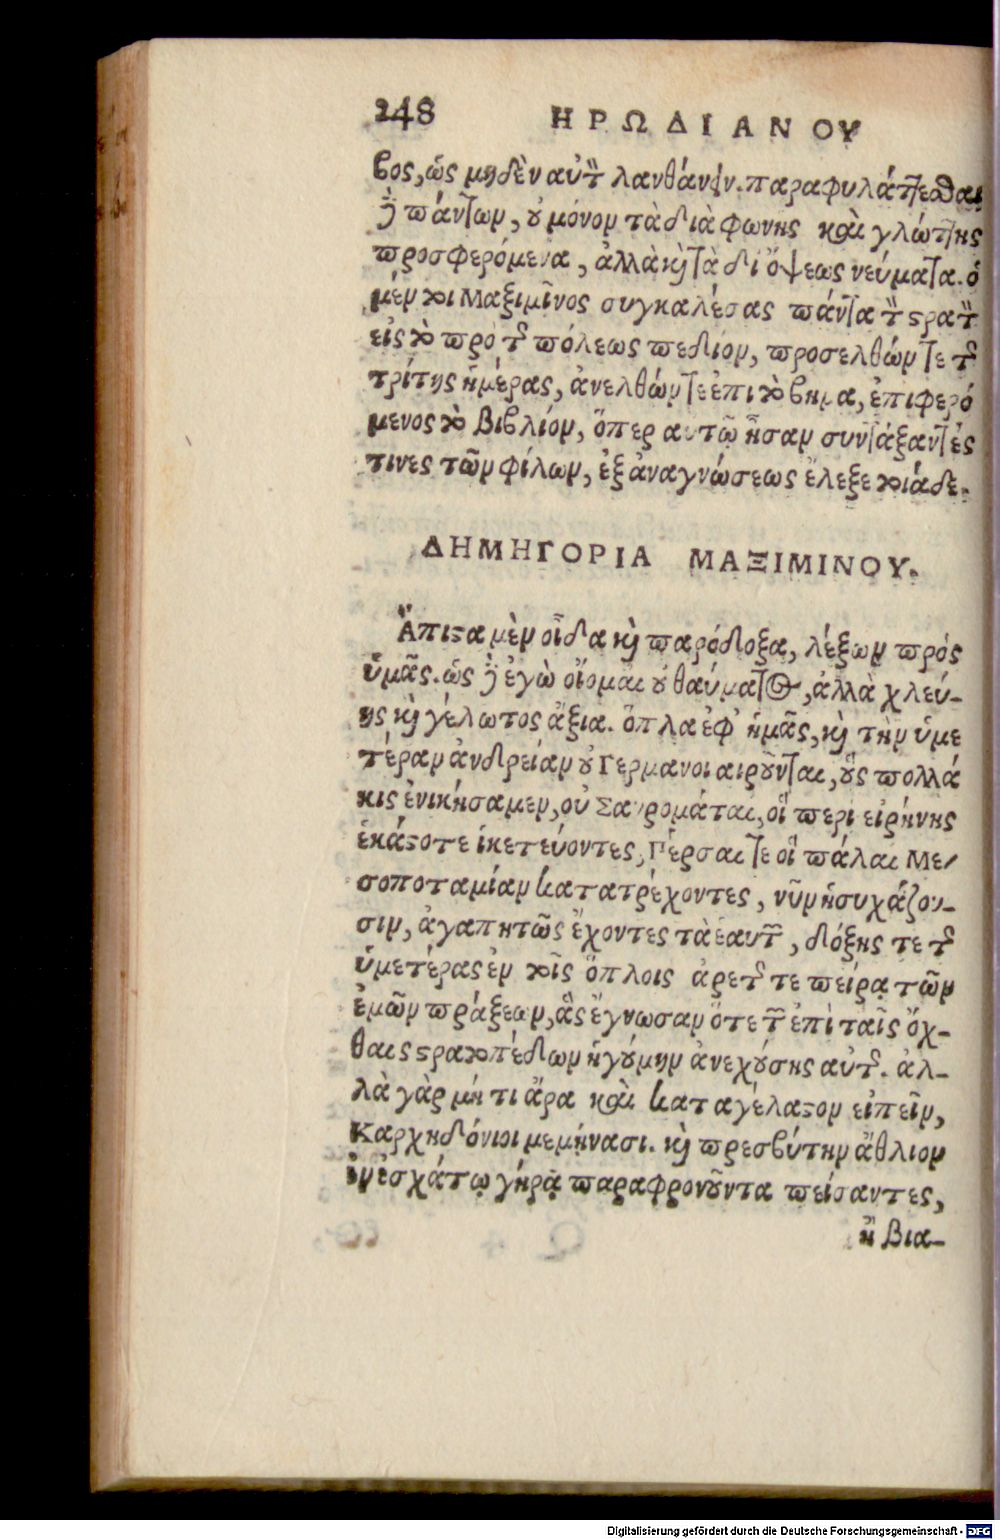 248 ΗΡΩΔΙΑΝΟΥ
βος, ὡς μηδὲν αὐτὸν λανθάνειν. παραφυλάττεσθαι
δὲ πάντων, οὐ μόνον τὰ διὰ φωνῆς καὶ γλώττης
προσφερόμενα, ἀλλὰ καὶ τὰ δι ὄψεως νεύματα. ὁ
μέν τοι Μαξιμῖνος συγκαλέσας πάντα τὸν στρατὸν
εἰς τὸ πρὸ τῆς πόλεως πεδίον, προσελθών τε τῆς
τρίτης ἡμέρας, ἀνελθών τε ἐπὶ τὸ βῆμα, ἐπιφερό
μενος τὸ βιβλίον, ὅπερ αυτῷ ἦσαν συντάξαντές
τινες τῶν φίλων, ἐξ ἀναγνώσεως ἔλεξε τοιάδε.
ΔΗΜΗΓΟΡΙΑ ΜΑΞΙΜΙΝΟΥ.
Ἄπιστα μὲν οἶδα καὶ παρόδοξα, λέξων πρός
ὑμᾶς. ὡς δὲ ἐγὼ οἴομαι οὐ θαύματος, ἀλλὰ χλεύ-
ης καὶ γέλωτος ἄξια. ὅπλα ἐφ᾽ ἡμᾶς, καὶ τὴν ὑμε
τέραν ἀνδρείαν οὐ Γερμανοι αιροῦνται, οὓς πολλά
κις ἐνικήσαμεν, οὐ Σαυρομάται, οἵ περι εἰρήνης
ἑκάστοτε ἱκετεύοντες, Πέρσαι τε οἵ πάλαι Με-
σοποταμίαν κατατρέχοντες, νῦν ἡσυχάζου-
σιν, ἀγαπητῶς ἔχοντες τὰ ἑαυτῶν, δόξης τε τῆς
ὑμετέρας ἐν τοῖς ὅπλοις ἀρετῆς τε πείρᾳ τῶν
ἐμῶν πράξεων, ἃς ἔγνωσαν ὅτε τῶν ἐπὶ ταῖς ὄχ-
θαις στρατοπέδων ἡγούμην ἀνεχούσης αὐτῆς. ἀλ-
λὰ γὰρ μή τι ἄρα καὶ καταγέλαστον εἰπεῖν,
Καρχηδόνιοι μεμήνασι. καὶ πρεσβύτην ἄθλιον
ἐν ἐσχάτῳ γήρᾳ παραφρονοῦντα πείσαντες,
ἢ βια-
Digitalisierung gefördert durch die Deutsche Forschungsgemeinschaft - DFG